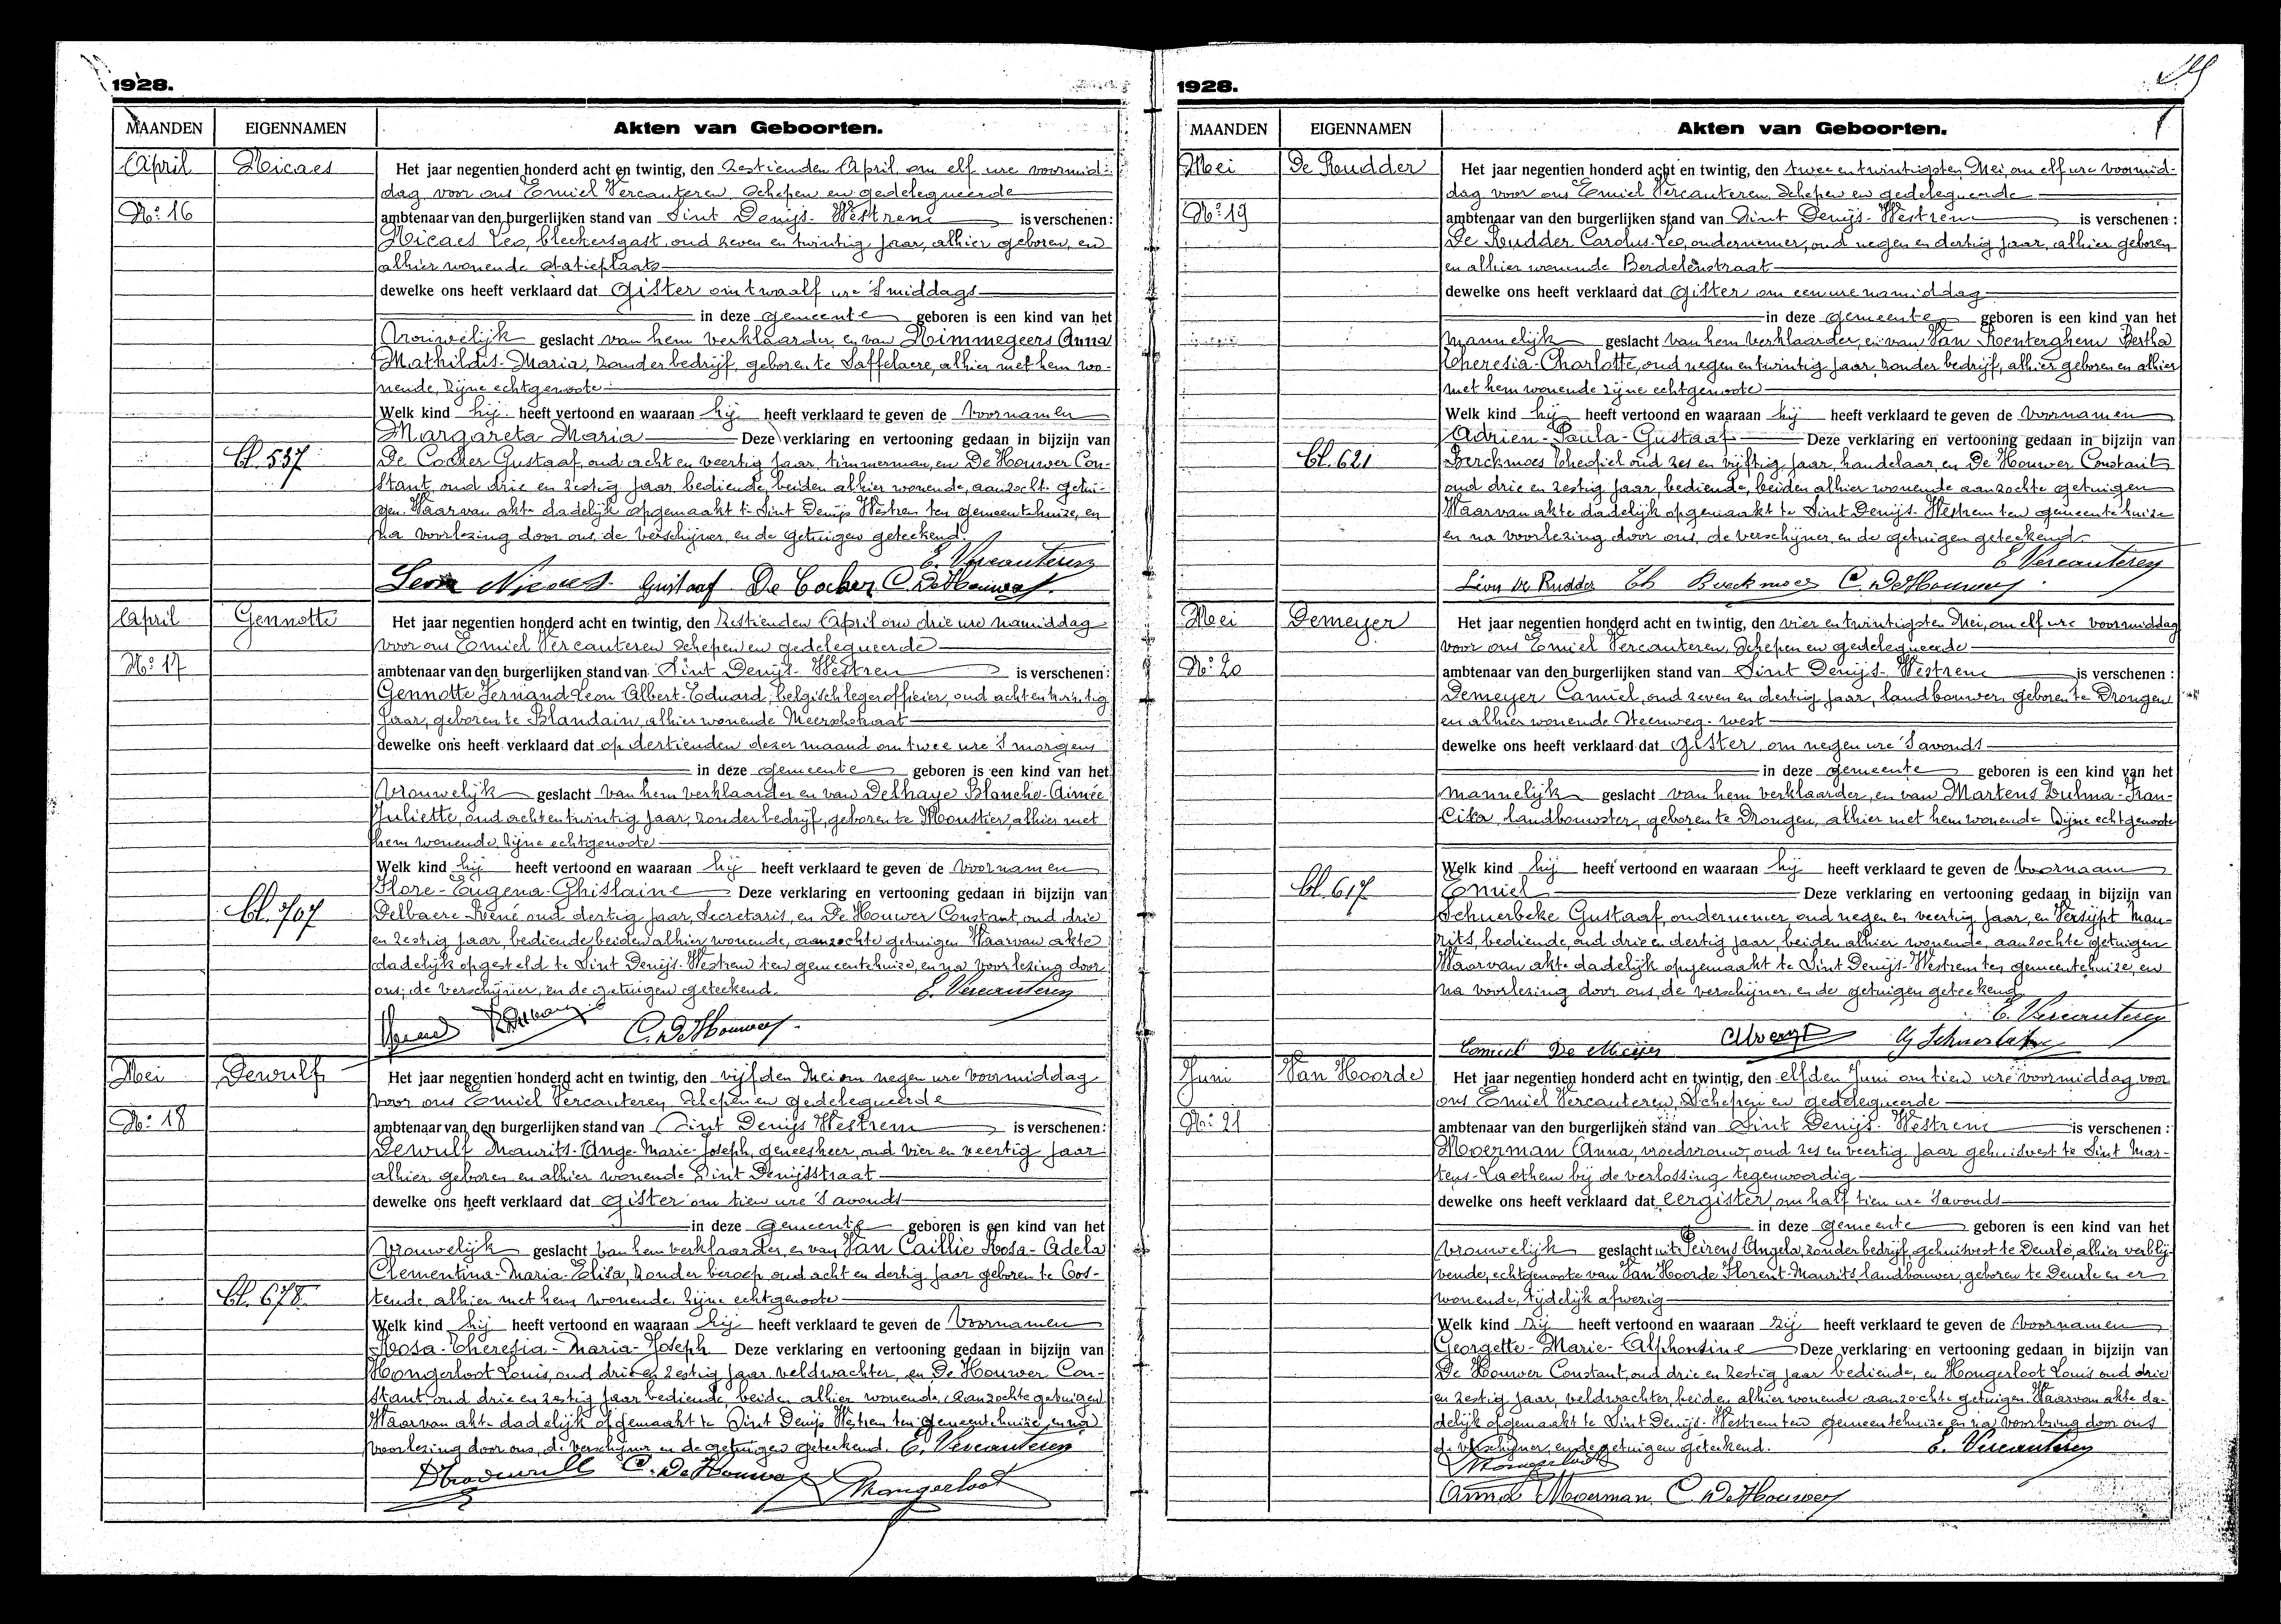 1928.
MAANDEN EIGENNAMEN Akten van Geboorten.
April Nicaes Het jaar negentien honderd acht en twintig, den zestienden April om elf ure voormid-
dag voor ons Emiel Vercauteren Schepen en gedelegueerde
No: 16 ambtenaar van den burgerlijken stand van Sint Denijs-Westrem is verschenen:
Nicaes Leo, bleekersgast, oud zeven en twintig jaar, alhier geboren, en
alhier wonende Statieplaats
dewelke ons heeft verklaard dat gister om twaalf ure 's middags
in deze gemeente geboren is een kind van het
Vrouwelijk geslacht van hem verklaarder en van Himmegeers Anna
Mathildis-Maria, zonder bedrijf, geboren te Saffelaere, alhier met hem wo-
nende, zijne echtgenoote
Welk kind hij heeft vertoond en waaraan hij heeft verklaard te geven de Voornamen
Margareta-Maria Deze verklaring en vertooning gedaan in bijzijn van
bl. 537 De Cocker Gustaaf, oud acht en veertig jaar, timmerman, en De Houwer Con-
stant, oud drie en zestig jaar bediende, beiden alhier wonende, aanzocht getui-
gen. Waarvan akte dadelijk opgemaakt te Sint Denijs Westrem ten gemeentehuize, en
na voorlezing door ons, de verschijner, en de getuigen geteekend.
E. Vercauteren
Leon Nicaes. Gustaaf De Cocker C. DeHouwer.
April Gennotte Het jaar negentien honderd acht en twintig, den zestienden April om drie ure namiddag
voor ons Emiel Vercauteren Schepen en gedelegueerde
No: 17 ambtenaar van den burgerlijken stand van Sint Denijs-Westrem is verschenen:
Gennotte Fernand Leon Albert-Eduard, belgisch legerofficier, oud acht en twintig
jaar, geboren te Blandain, alhier wonende Meerschstraat
dewelke ons heeft verklaard dat op dertienden dezer maand om twee ure 's morgens
in deze gemeente geboren is een kind van het
Vrouwelijk geslacht van hem verklaarder en van Delhaye Blanche-Aimée
Juliette, oud acht en twintig jaar, zonder bedrijf, geboren te Moustier, alhier met
hem wonende, zijne echtgenoote
Welk kind hij heeft vertoond en waaraan hij heeft verklaard te geven de Voornamen
Flore-Eugena-Ghislaine Deze verklaring en vertooning gedaan in bijzijn van
bl. 707 Delbaere René oud dertig jaar, Secretaris, en De Houwer Constant, oud drie
en zestig jaar, bediende beiden alhier wonende, aanzochte getuigen Waarvan akte
dadelijk opgesteld te Sint Denijs-Westrem ten gemeentehuize, en na voorlezing door
ons, de verschijner, en de getuigen geteekend. E. Vercauteren
C. DeHouwer.
Mei Dewulf Het jaar negentien honderd acht en twintig, den vijfden Mei om negen ure voormiddag
voor ons Emiel Vercauteren Schepen en gedelegueerde
No: 18 ambtenaar van den burgerlijken stand van Sint Denijs Westrem is verschenen:
Dewulf Maurits-Ange-Marie-Joseph, geneesheer, oud vier en veertig jaar
alhier geboren en alhier wonende Sint Denijsstraat
dewelke ons heeft verklaard dat gister om tien ure 's avonds
in deze gemeente geboren is een kind van het
Vrouwelijk geslacht van hem verklaarder, en van Van Caillie Rosa-Adela
Clementina-Maria-Elisa, zonder beroep oud acht en dertig jaar geboren te Oos-
bl. 678 tende, alhier met hem wonende, zijne echtgenoote
Welk kind hij heeft vertoond en waaraan hij heeft verklaard te geven de Voornamen
Rosa-Theresia-Maria-Joseph Deze verklaring en vertooning gedaan in bijzijn van
Hongerloot Louis, oud drie en zestig jaar veldwachter, en De Houwer Con-
stant, oud drie en zestig jaar bediende, beiden alhier wonende, aanzochte getuigen
Waarvan akte dadelijk opgemaakt te Sint Denijs Westrem ten gemeentehuize, en na
voorlezing door ons, de verschijner en de getuigen geteekend. E. Vercauteren
C. DeHouwer Hongerloot
1928.
MAANDEN EIGENNAMEN Akten van Geboorten.
Mei De Rudder Het jaar negentien honderd acht en twintig, den twee en twintigsten Mei, om elf ure voormid-
dag voor ons Emiel Vercauteren, Schepen en gedelegueerde
No: 19 ambtenaar van den burgerlijken stand van Sint Denijs-Westrem is verschenen:
De Rudder Carolus-Leo, ondernemer, oud negen en dertig jaar, alhier geboren
en alhier wonende Berdelenstraat
dewelke ons heeft verklaard dat gister om een ure namiddag
in deze gemeente geboren is een kind van het
mannelijk geslacht van hem verklaarder, en van Van Renterghem Bertha
Theresia-Charlotte, oud negen en twintig jaar, zonder bedrijf, alhier geboren en alhier
met hem wonende zijne echtgenoote
Welk kind hij heeft vertoond en waaraan hij heeft verklaard te geven de Voornamen
Adrien-Paula-Gustaaf Deze verklaring en vertooning gedaan in bijzijn van
bl. 621 Berckmoes Theofiel oud zes en vijftig jaar, handelaar, en De Houwer Constant
oud drie en zestig jaar, bediende, beiden alhier wonende aanzochte getuigen
Waarvan akte dadelijk opgemaakt te Sint Denijs-Westrem ten gemeentehuize
en na voorlezing door ons, de verschijner, en de getuigen geteekend
E Vercauteren
Léon De Rudder Th Berckmoes C. DeHouwer
Mei Demeyer Het jaar negentien honderd acht en twintig, den vier en twintigsten Mei, om elf ure voormiddag
voor ons Emiel Vercauteren, Schepen en gedelegueerde
No: 20 ambtenaar van den burgerlijken stand van Sint Denijs-Westrem is verschenen:
Demeyer Camiel, oud zeven en dertig jaar, landbouwer, geboren te Drongen
en alhier wonende Steenweg-west
dewelke ons heeft verklaard dat gister, om negen ure 's avonds
in deze gemeente geboren is een kind van het
mannelijk geslacht van hem verklaarder, en van Martens Dulma-Fran-
ciska, landbouwster, geboren te Drongen, alhier met hem wonende zijne echtgenoote
Welk kind hij heeft vertoond en waaraan hij heeft verklaard te geven de Voornaam
bl. 617 Emiel Deze verklaring en vertooning gedaan in bijzijn van
Schuerbeke Gustaaf, ondernemer oud negen en veertig jaar, en Versijpt Mau-
rits, bediende, oud drie en dertig jaar, beiden alhier wonende, aanzochte getuigen
Waarvan akte dadelijk opgemaakt te Sint Denijs-Westrem ten gemeentehuize, en
na voorlezing door ons, de verschijner, en de getuigen geteekend
E. Vercauteren
Camiel De Meijer G Schuerbeke
Juni Van Hoorde Het jaar negentien honderd acht en twintig, den elfden Juni om tien ure voormiddag voor
ons Emiel Vercauteren, Schepen en gedelegueerde
No: 21 ambtenaar van den burgerlijken stand van Sint Denijs-Westrem is verschenen:
Moerman Anna, vroedvrouw, oud zes en veertig jaar gehuisvest te Sint Mar-
tens-Laethem bij de verlossing tegenwoordig
dewelke ons heeft verklaard dat eergister, om half tien ure 's avonds
in deze gemeente geboren is een kind van het
Vrouwelijk geslacht uit Peirens Angela, zonder bedrijf, gehuisvest te Deurle, alhier verblij-
vende, echtgenoote van Van Hoorde Florent-Maurits landbouwer, geboren te Deurle en er
wonende, tijdelijk afwezig
Welk kind zij heeft vertoond en waaraan zij heeft verklaard te geven de Voornamen
Georgette-Marie-Alphonsine Deze verklaring en vertooning gedaan in bijzijn van
De Houwer Constant, oud drie en zestig jaar bediende, en Hongerloot Louis oud drie
en zestig jaar, veldwachter, beiden alhier wonende aanzochte getuigen. Waarvan akte da-
delijk opgemaakt te Sint Denijs-Westrem ten gemeentehuize en na voorlezing door ons
de verschijner, en de getuigen geteekend. E. Vercauteren
Hongerloot
Anna Moerman C. DeHouwer